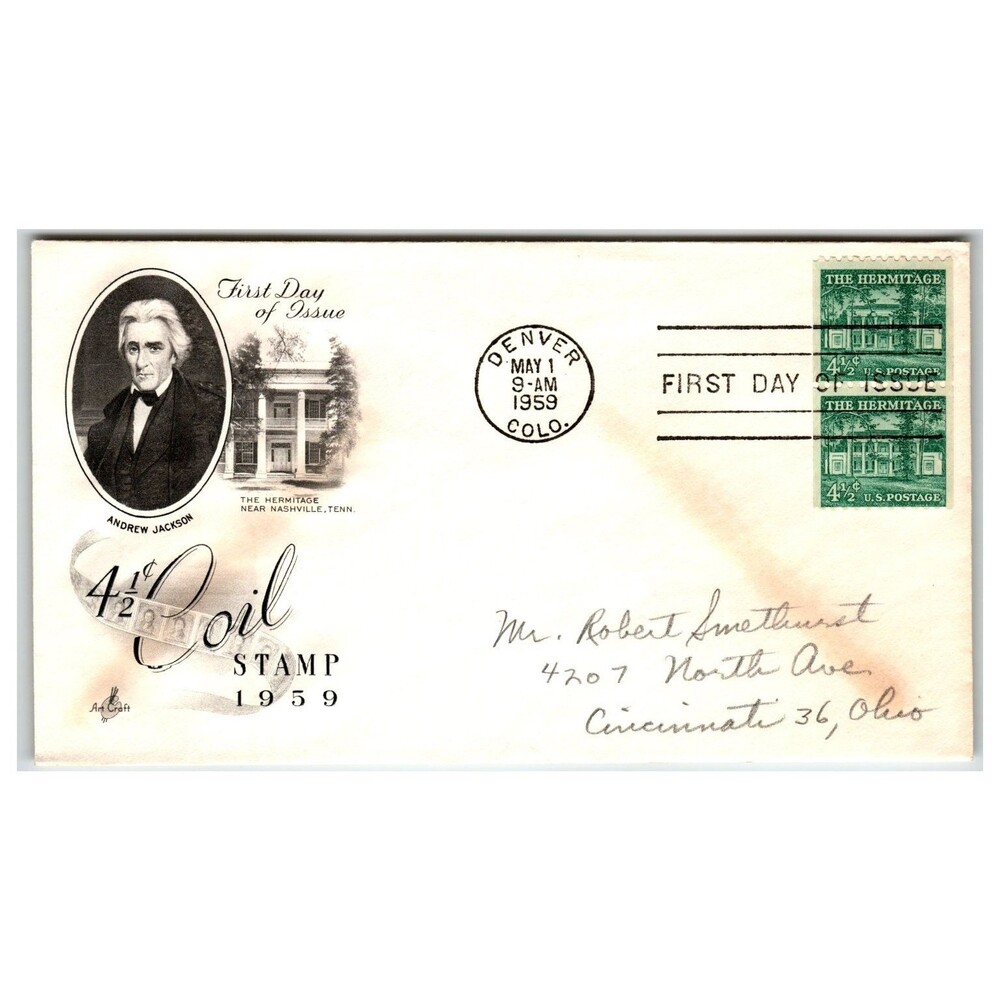 First Day
of Issue
ANDREW JACKSON
THE HERMITAGE
NEAR NASHVILLE, TENN.
4½¢ Coil
STAMP
1959
Art Craft
DENVER
MAY 1
9-AM
1959
COLO.
FIRST DAY OF ISSUE
THE HERMITAGE
4½¢ U.S. POSTAGE
THE HERMITAGE
4½¢ U.S. POSTAGE
Mr. Robert Smethurst
4207 North Ave.
Cincinnati 36, Ohio